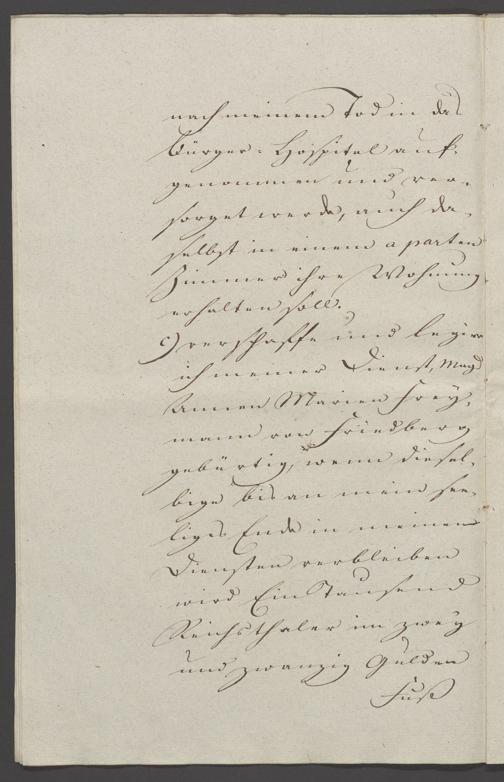 nach meinem Tod in das
Bürger-Hospital auf-
genommen und ver-
sorget werde, auch da-
selbst in einem a parten
Zimmer ihre Wohnung
erhalten soll.
c) verschaffe und legire
ich meiner Dienst-Magd
Annen Marien Frey-
mann von Friedberg
gebürtig, wenn diesel-
bige bis an mein see-
liges Ende in meinen
Diensten verbleiben
wird Ein Tausend
Reichsthaler im zwey
und zwanzig Gulden
Fuß